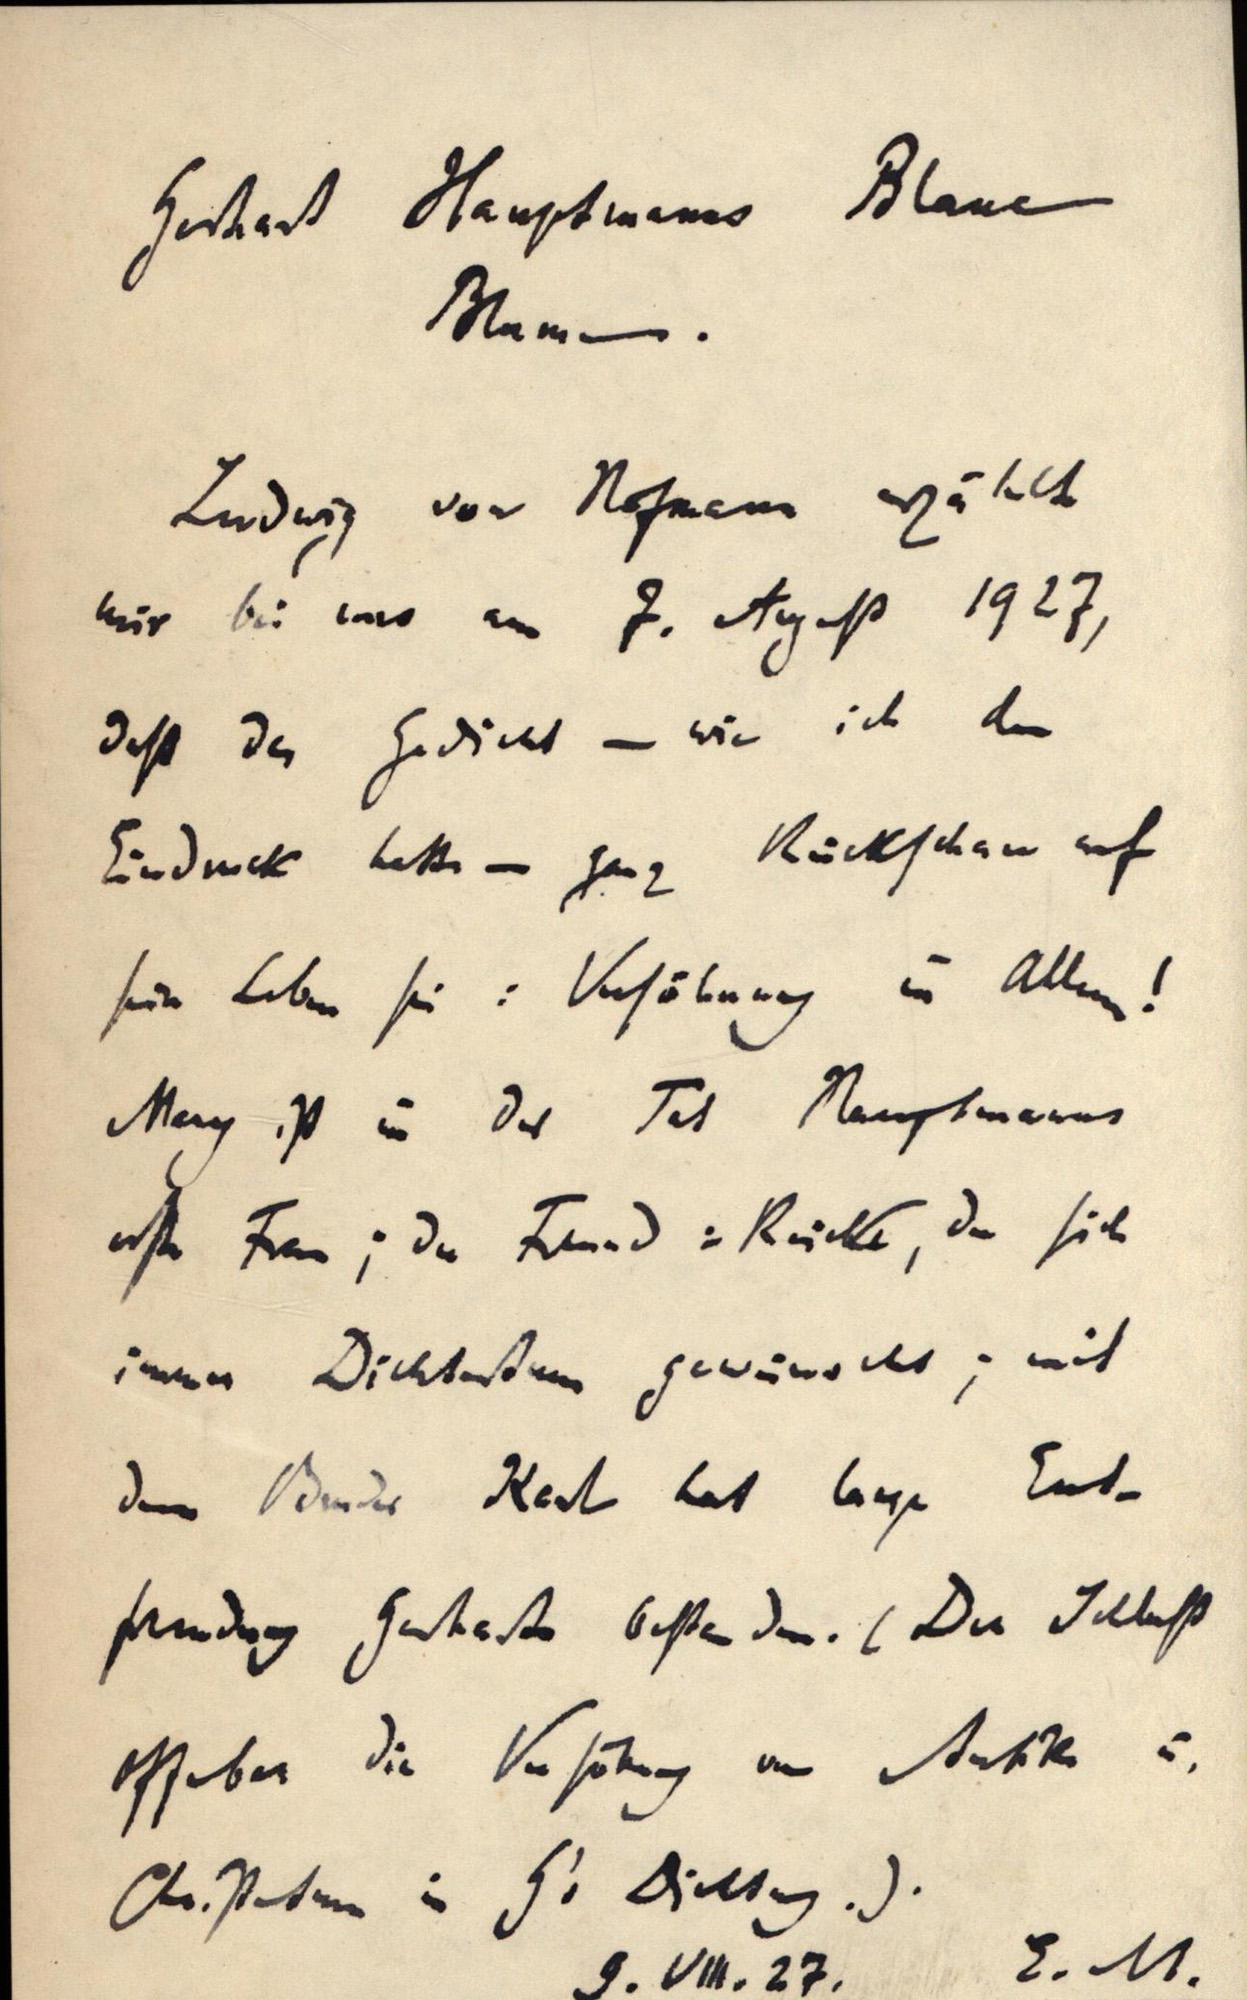 Gerhart Hauptmanns Blaue
Blume.
Ludwig von Hofmann erzählte
mir bei uns am 7. August 1927,
daß das Gedicht – wie ich den
Eindruck hatte – ganz Rückschau auf
sein Leben sei: Versöhnung in Allem!
Mary ist in der Tat Hauptmanns
erste Frau; der Freund : , der sich
immer Dichtertum gewünscht; mit
dem Bruder Karl hat lange Ent-
fremdung Gerharts bestanden. (Der Schluß
offenbar die Versöhnung von Antike u.
Christentum in G's Dichtung.).
9. VIII. 27. E. M.